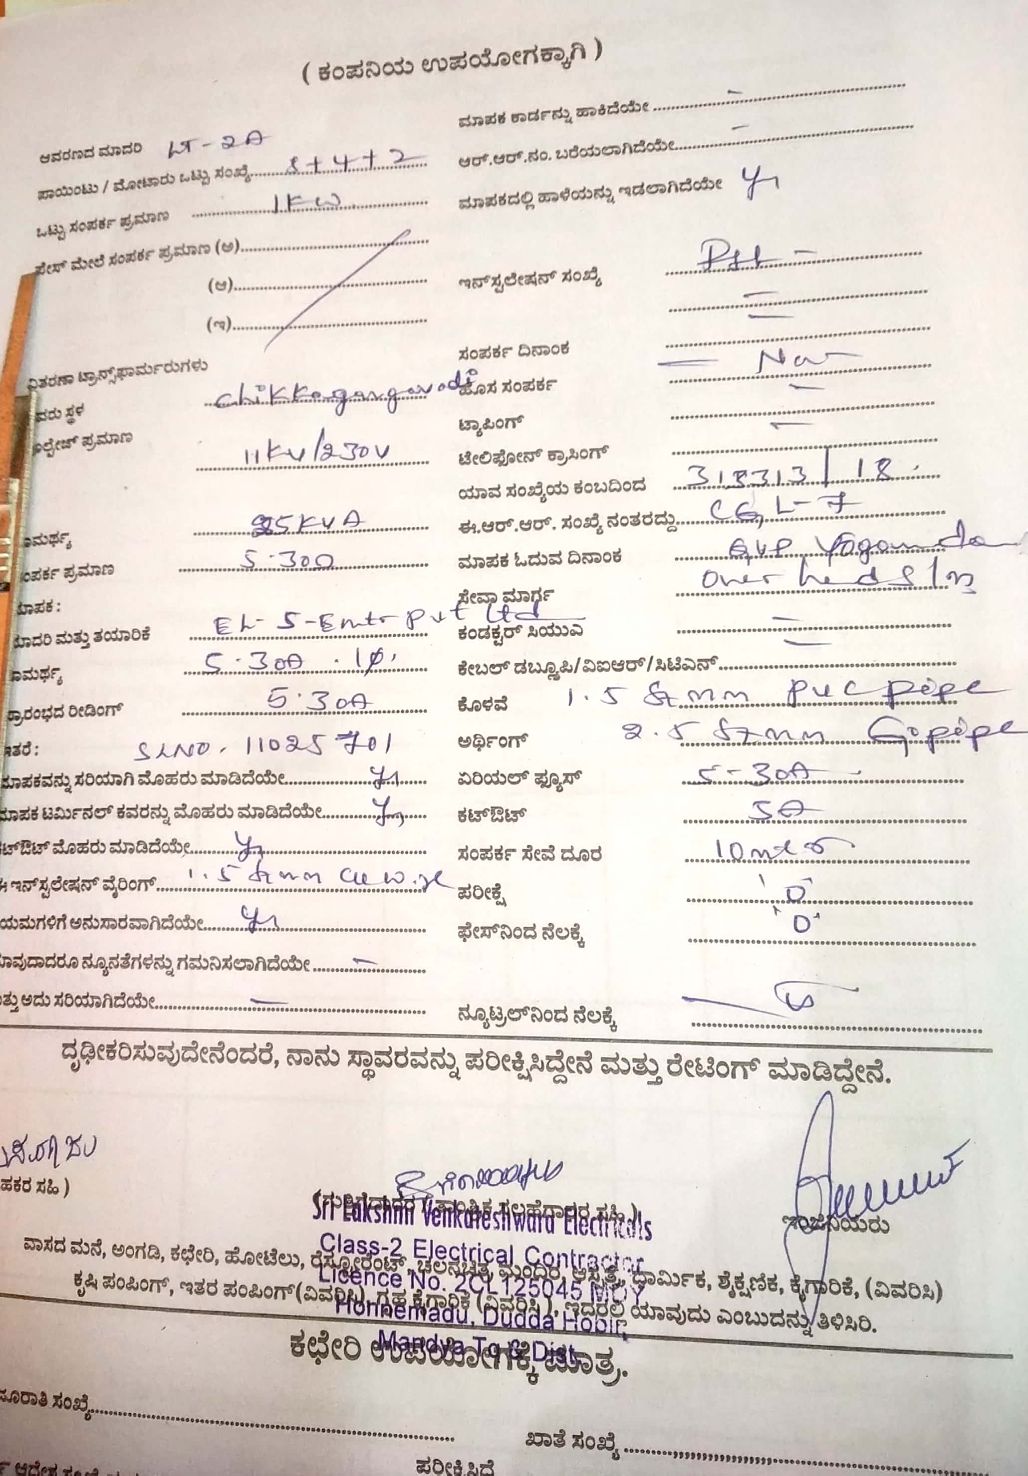 ( ಕಂಪನಿಯ ಉಪಯೋಗಕ್ಕಾಗಿ )
ಆವರಣದ ಮಾದರಿ LT-2A
ಪಾಯಿಂಟು / ಮೋಟಾರು ಒಟ್ಟು ಸಂಖ್ಯೆ 8+4+2
ಒಟ್ಟು ಸಂಪರ್ಕ ಪ್ರಮಾಣ 1KW
ಫೇಸ್ ಮೇಲೆ ಸಂಪರ್ಕ ಪ್ರಮಾಣ (ಅ)
(ಆ)
(ಇ)
ವಿತರಣಾ ಟ್ರಾನ್ಸ್‌ಫಾರ್ಮರುಗಳು
ವರು ಸ್ಥಳ Chikkagangavadi
ೋಲ್ಟೇಜ್ ಪ್ರಮಾಣ 11KV/230V
ಾಮರ್ಥ್ಯ 25KVA
ಂಪರ್ಕ ಪ್ರಮಾಣ 5-30A
ಮಾಪಕ :
ಮಾದರಿ ಮತ್ತು ತಯಾರಿಕೆ EL-5-Entr Pvt Ltd
ಾಮರ್ಥ್ಯ 5-30A . 1φ
ಪ್ರಾರಂಭದ ರೀಡಿಂಗ್ 5-30A
ಇತರೆ : SLNO. 11025701
ಮಾಪಕವನ್ನು ಸರಿಯಾಗಿ ಮೊಹರು ಮಾಡಿದೆಯೇ
ಮಾಪಕ ಟರ್ಮಿನಲ್ ಕವರನ್ನು ಮೊಹರು ಮಾಡಿದೆಯೇ
ಕಟ್‌ಔಟ್ ಮೊಹರು ಮಾಡಿದೆಯೇ
ಈ ಇನ್‌ಸ್ಟಲೇಷನ್ ವೈರಿಂಗ್ 1.5 Sqmm cu wire
ಯಮಗಳಿಗೆ ಅನುಸಾರವಾಗಿದೆಯೇ
ಯಾವುದಾದರೂ ನ್ಯೂನತೆಗಳನ್ನು ಗಮನಿಸಲಾಗಿದೆಯೇ —
ತ್ತು ಅದು ಸರಿಯಾಗಿದೆಯೇ —
ಮಾಪಕ ಕಾರ್ಡನ್ನು ಹಾಕಿದೆಯೇ -
ಆರ್.ಆರ್.ನಂ. ಬರೆಯಲಾಗಿದೆಯೇ -
ಮಾಪಕದಲ್ಲಿ ಹಾಳೆಯನ್ನು ಇಡಲಾಗಿದೆಯೇ
ಇನ್‌ಸ್ಟಲೇಷನ್ ಸಂಖ್ಯೆ
ಸಂಪರ್ಕ ದಿನಾಂಕ
ಹೊಸ ಸಂಪರ್ಕ
ಟ್ಯಾಪಿಂಗ್
ಟೇಲಿಫೋನ್ ಕ್ರಾಸಿಂಗ್
ಯಾವ ಸಂಖ್ಯೆಯ ಕಂಬದಿಂದ 318313/18
ಈ.ಆರ್.ಆರ್. ಸಂಖ್ಯೆ ನಂತರದ್ದು CGL-7
ಮಾಪಕ ಓದುವ ದಿನಾಂಕ
ಸೇವಾ ಮಾರ್ಗ Over head
ಕಂಡಕ್ಟರ್ ಸಿಯುವಿ
ಕೇಬಲ್ ಡಬ್ಲ್ಯೂಪಿ/ವಿಐಆರ್/ಸಿಟಿಎಸ್
ಕೊಳವೆ 1.5 Sqmm PVC pipe
ಅರ್ಥಿಂಗ್ 2.5 Sqmm GI pipe
ಏರಿಯಲ್ ಫ್ಯೂಸ್ 5-30A
ಕಟ್‌ಔಟ್ 5A
ಸಂಪರ್ಕ ಸೇವೆ ದೂರ 10 mtr
ಪರೀಕ್ಷೆ '0'
ಫೇಸ್‌ನಿಂದ ನೆಲಕ್ಕೆ '0'
ನ್ಯೂಟ್ರಲ್‌ನಿಂದ ನೆಲಕ್ಕೆ
ದೃಢೀಕರಿಸುವುದೇನೆಂದರೆ, ನಾನು ಸ್ಥಾವರವನ್ನು ಪರೀಕ್ಷಿಸಿದ್ದೇನೆ ಮತ್ತು ರೇಟಿಂಗ್ ಮಾಡಿದ್ದೇನೆ.
ಹಕರ ಸಹಿ )
ಇಂಜಿನಿಯರು
Sri Lakshmi Venkateshwara Electricals
Class-2 Electrical Contractor
Licence No. 2CL125045 MDY
Honnemadu, Dudda Hobli,
Mandya Tq & Dist.
ವಾಸದ ಮನೆ, ಅಂಗಡಿ, ಕಛೇರಿ, ಹೋಟೆಲು, ರೆಸ್ಟೋರೆಂಟ್, ಚಲನಚಿತ್ರ ಮಂದಿರ, ಆಸ್ಪತ್ರೆ, ಧಾರ್ಮಿಕ, ಶೈಕ್ಷಣಿಕ, ಕೈಗಾರಿಕೆ, (ವಿವರಿಸಿ)
ಕೃಷಿ ಪಂಪಿಂಗ್, ಇತರ ಪಂಪಿಂಗ್(ವಿವರಿಸಿ), ಗೃಹ ಕೈಗಾರಿಕೆ (ವಿವರಿಸಿ), ಇದರಲ್ಲಿ ಯಾವುದು ಎಂಬುದನ್ನು ತಿಳಿಸಿರಿ.
ಕಛೇರಿ ಉಪಯೋಗಕ್ಕೆ ಮಾತ್ರ.
ಸೂರಾತಿ ಸಂಖ್ಯೆ
ಖಾತೆ ಸಂಖ್ಯೆ
ಪರೀಕ್ಷಿಸಿದೆ